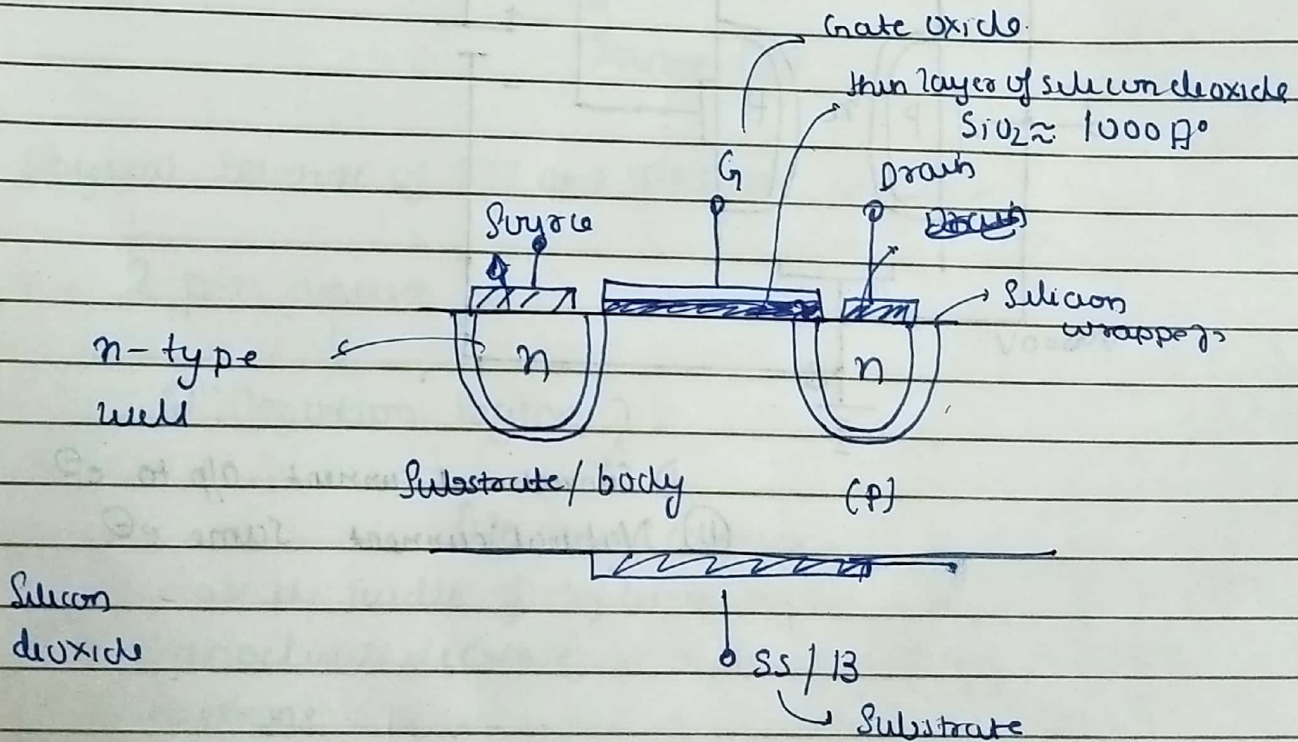 Gate oxide.
thin layer of silicon deoxide
SiO2 ≈ 1000 A°
G
Drain
Source
Silicon
wrappers
n-type
well
n
n
Substrate/body (P)
Silicon
deoxide
SS/B
Substrate